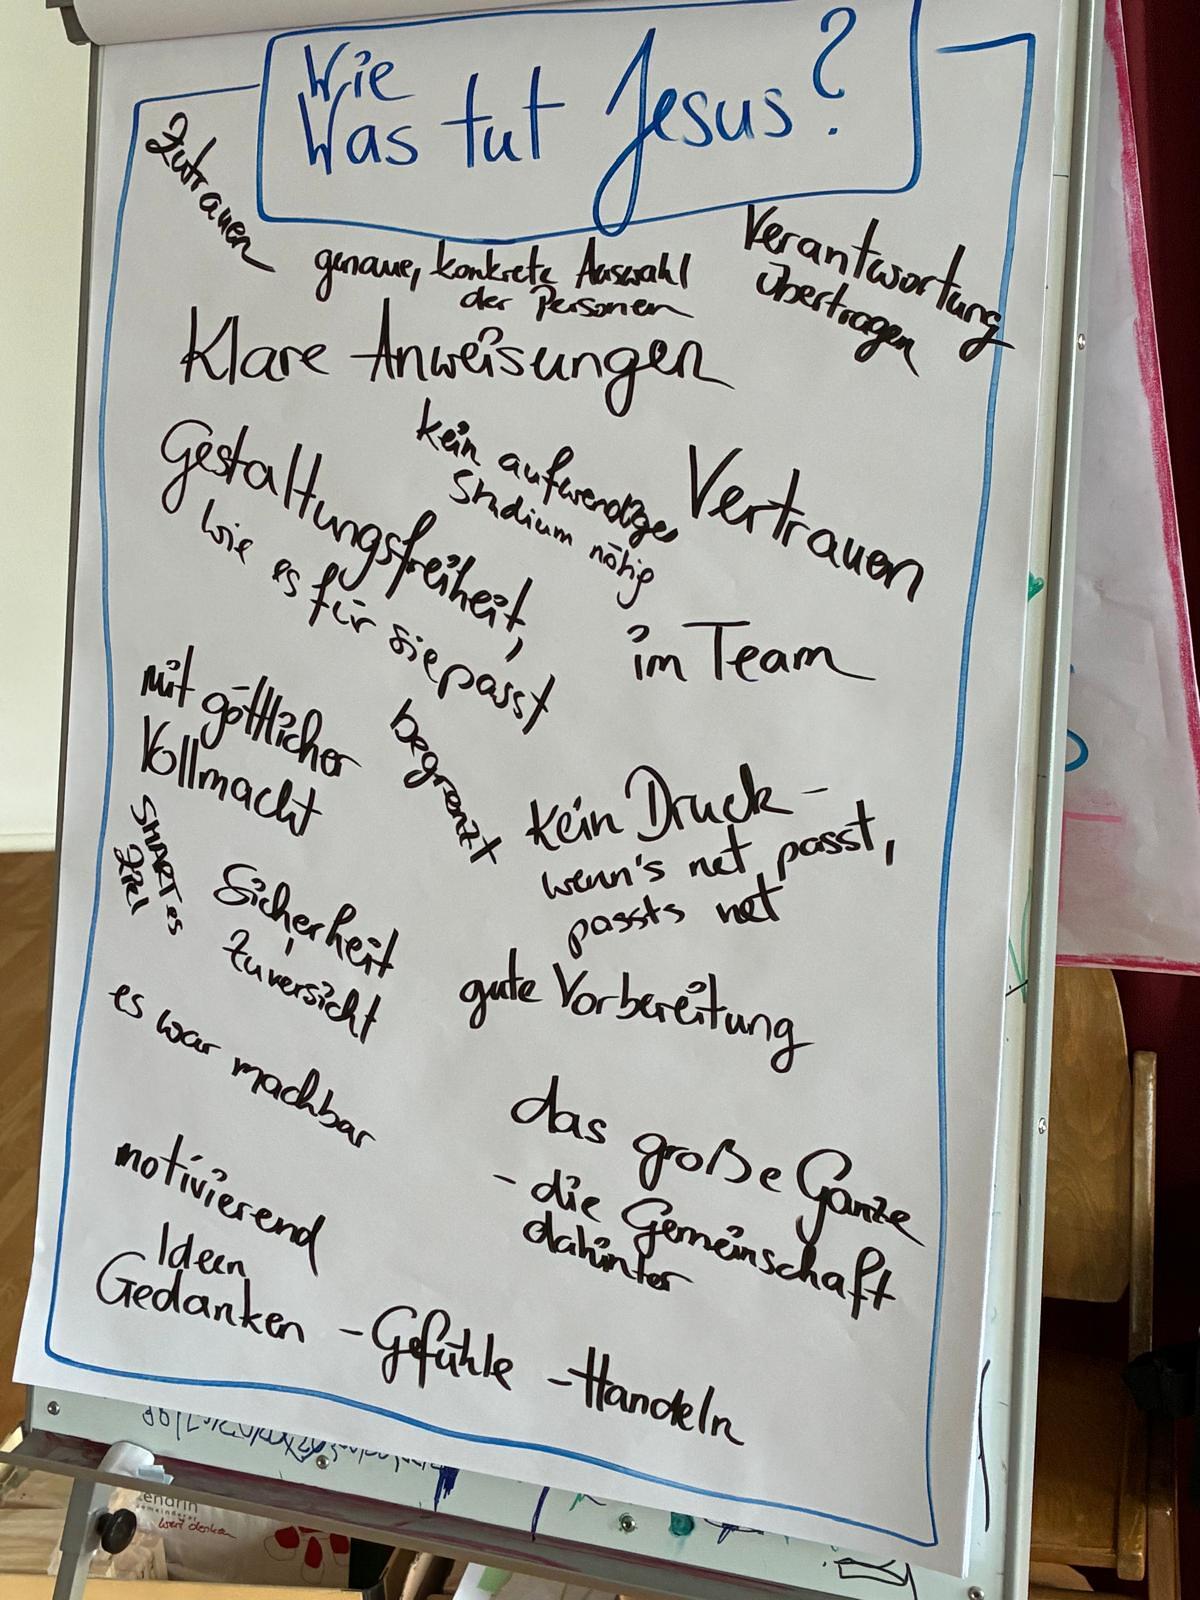 Wie
Was tut Jesus?
Zutrauen
genaue, konkrete Auswahl
der Personen
Verantwortung
übertragen
Klare Anweisungen
kein aufwendiges
Studium nötig
Vertrauen
Gestaltungsfreiheit,
wie es für sie passt
im Team
mit göttlicher
Vollmacht
begrenzt
Kein Druck -
wenn's net passt,
passts net
SMARTes
Ziel
Sicherheit,
Zuversicht
gute Vorbereitung
es war machbar
das große Ganze
- die Gemeinschaft
dahinter
motivierend
Ideen
Gedanken - Gefühle - Handeln